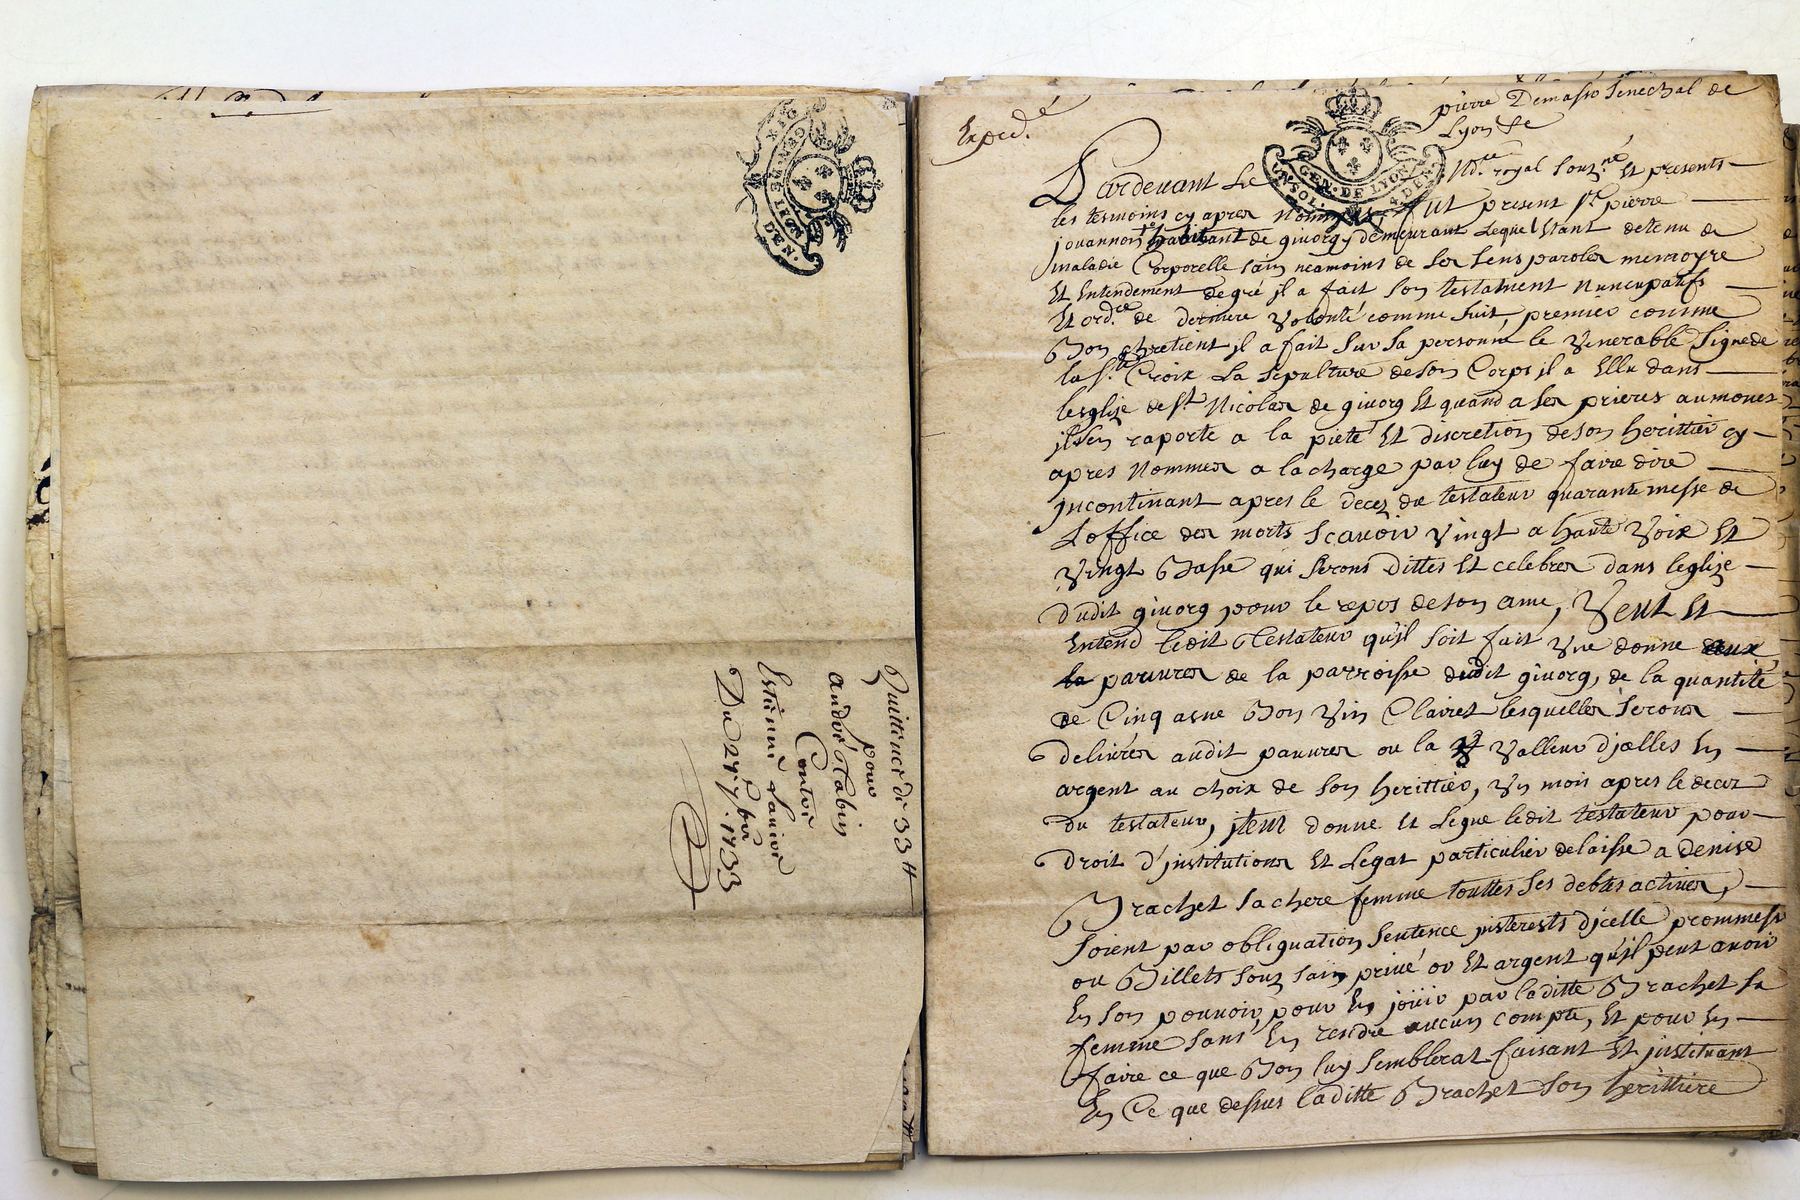 GEN. DE LYON
DIX DEN.
Quittance de 33 ₶
pour
andré Tabin
Contre
Estienne Lanier
Du 27 7bre 1733
Exped.é
pierre Demasso senechal de
Lyon &c
GEN. DE LYON
UN SOL. 4. DEN.
Pardevant Le No.re royal souz.né Et presents
les tesmoins cy apres nommes, fut present s.r pierre
jouannon habitant de givorg y demeurant Lequel Estant detenu de
maladie Corporelle sain neamoins de ses sens paroles memoyre
Et Entendement de gré jl a fait son testament nuncupatifs
Et ord.ce de derniere Volonté comme suit, premier comme
Bon chretient jl a fait sur sa personne le Venerable signe de
la S.te Croix La sepulture de son Corps jl a Ellu dans
lesglize de S.t Nicolas de givorg Et quand a ses prieres aumones
jl s'en raporte a la pieté Et discretion de son herittier cy
apres Nommer a la charge par luy de faire dire
jncontinant apres le decez du testateur quarante messe de
L'office des morts scavoir Vingt a haute Voix Et
Vingt Basse qui serons dittes Et celebres dans leglize
dudit givorg pour le repos de son ame, Veut Et
Entend ledit Testateur qu'jl soit fait Vne donne aux
la pauvres de la parroisse dudit givorg, de la quantité
de Cinq asne Bon Vin Clairet lesquelles serons
delivres audit pauvres ou la Valleur d'jcelles En
argent au choix de son herittier, Un mois apres le decez
du testateur, jtem donne Et Legue ledit testateur pour
droit d'jnstitution Et Legat particulier delaisse a denise
Brachet sa chere femme touttes ses debtes actives,
soient par obliguation sentence jnterests d'jcelle prommesse
ou Billets souz sain privé or Et argent qu'jl peut avoir
En son pouvoir, pour En joüir par laditte Brachet sa
femme sans En rendre aucun compte, Et pour En
faire ce que Bon luy semblerat faisant Et jnstituant
En Ce que dessus laditte Brachet son herittiere